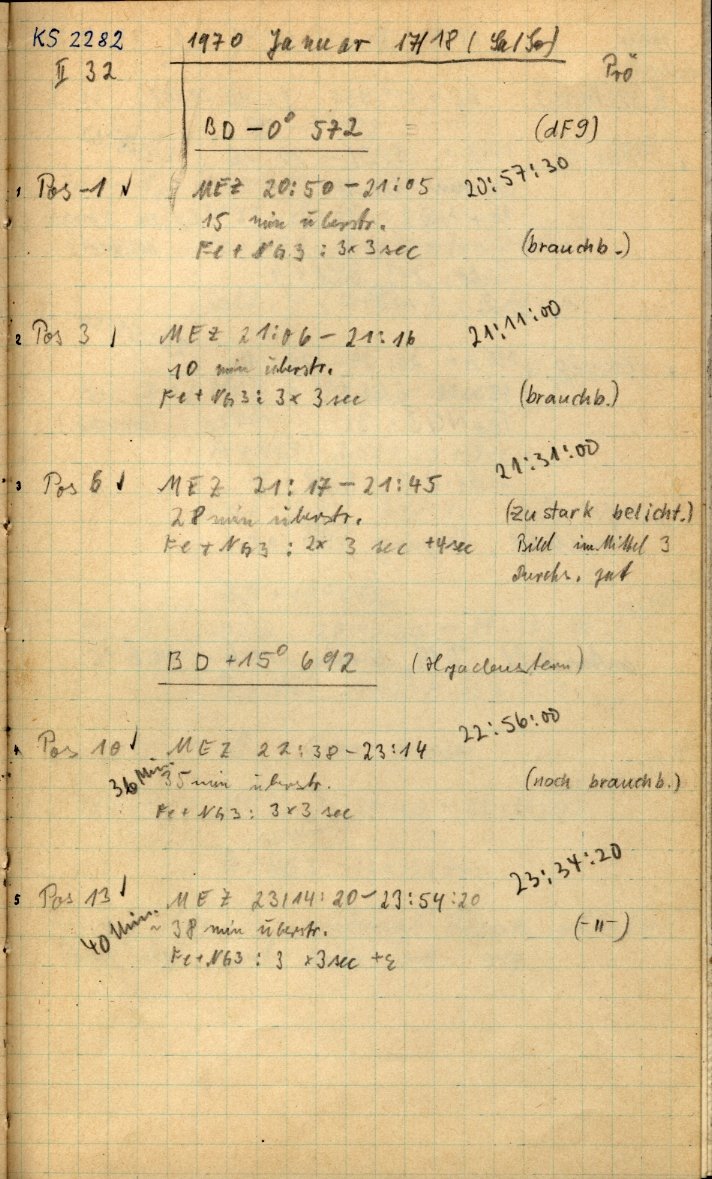 KS 2282 1970 Januar 17/18 (Sa/So)
II 32 Prö
BD -0° 572 (dF9)
1 Pos -1 ✓ MEZ 20:50 - 21:05 20:57:30
15 min überstr.
Fe + NG3 : 3x 3 sec (brauchb.)
2 Pos 3 ✓ MEZ 21:06 - 21:16 21:11:00
10 min überstr.
Fe + NG3 : 3 x 3 sec (brauchb.)
3 Pos 6 ✓ MEZ 21:17 - 21:45 21:31:00
28 min überstr. (zu stark belicht.)
Fe + NG3 : 2x 3 sec +4sec Bild im Mittel 3
Durchs. gut
BD +15° 692 (Hyadenstern)
4 Pos 10 ✓ MEZ 22:38 - 23:14 22:56:00
36 Min. 35 min überstr. (noch brauchb.)
Fe + NG3 : 3 x 3 sec
5 Pos 13 ✓ MEZ 23:14:20 - 23:54:20 23:34:20
40 Min. ~ 38 min überstr. (-"-)
Fe + NG3 : 3 x 3 sec + ε